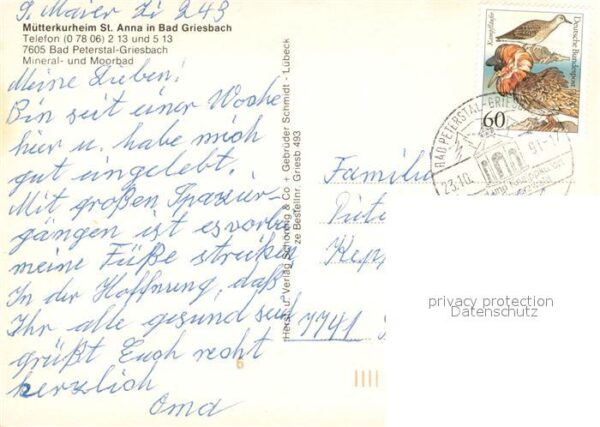 G. Maier Zi 243
Mütterkurheim St. Anna in Bad Griesbach
Telefon (0 78 06) 2 13 und 5 13
7605 Bad Peterstal-Griesbach
Mineral- und Moorbad
Meine Lieben!
Bin seit einer Woche
hier u. habe mich
gut eingelebt.
Mit großen Spazier-
gängen ist es vorbei
meine Füße streiken
In der Hoffnung, daß
Ihr alle gesund seid
grüßt Euch recht
herzlich
Oma
Herst. u. Verlag Schöning & Co + Gebrüder Schmidt - Lübeck
ze Bestellnr. Griesb 493
Kampfläufer
Deutsche Bundespost
60
BAD PETERSTAL-GRIESB
23.10. 91-1
Familie
Kepp
7741
privacy protection
Datenschutz
6